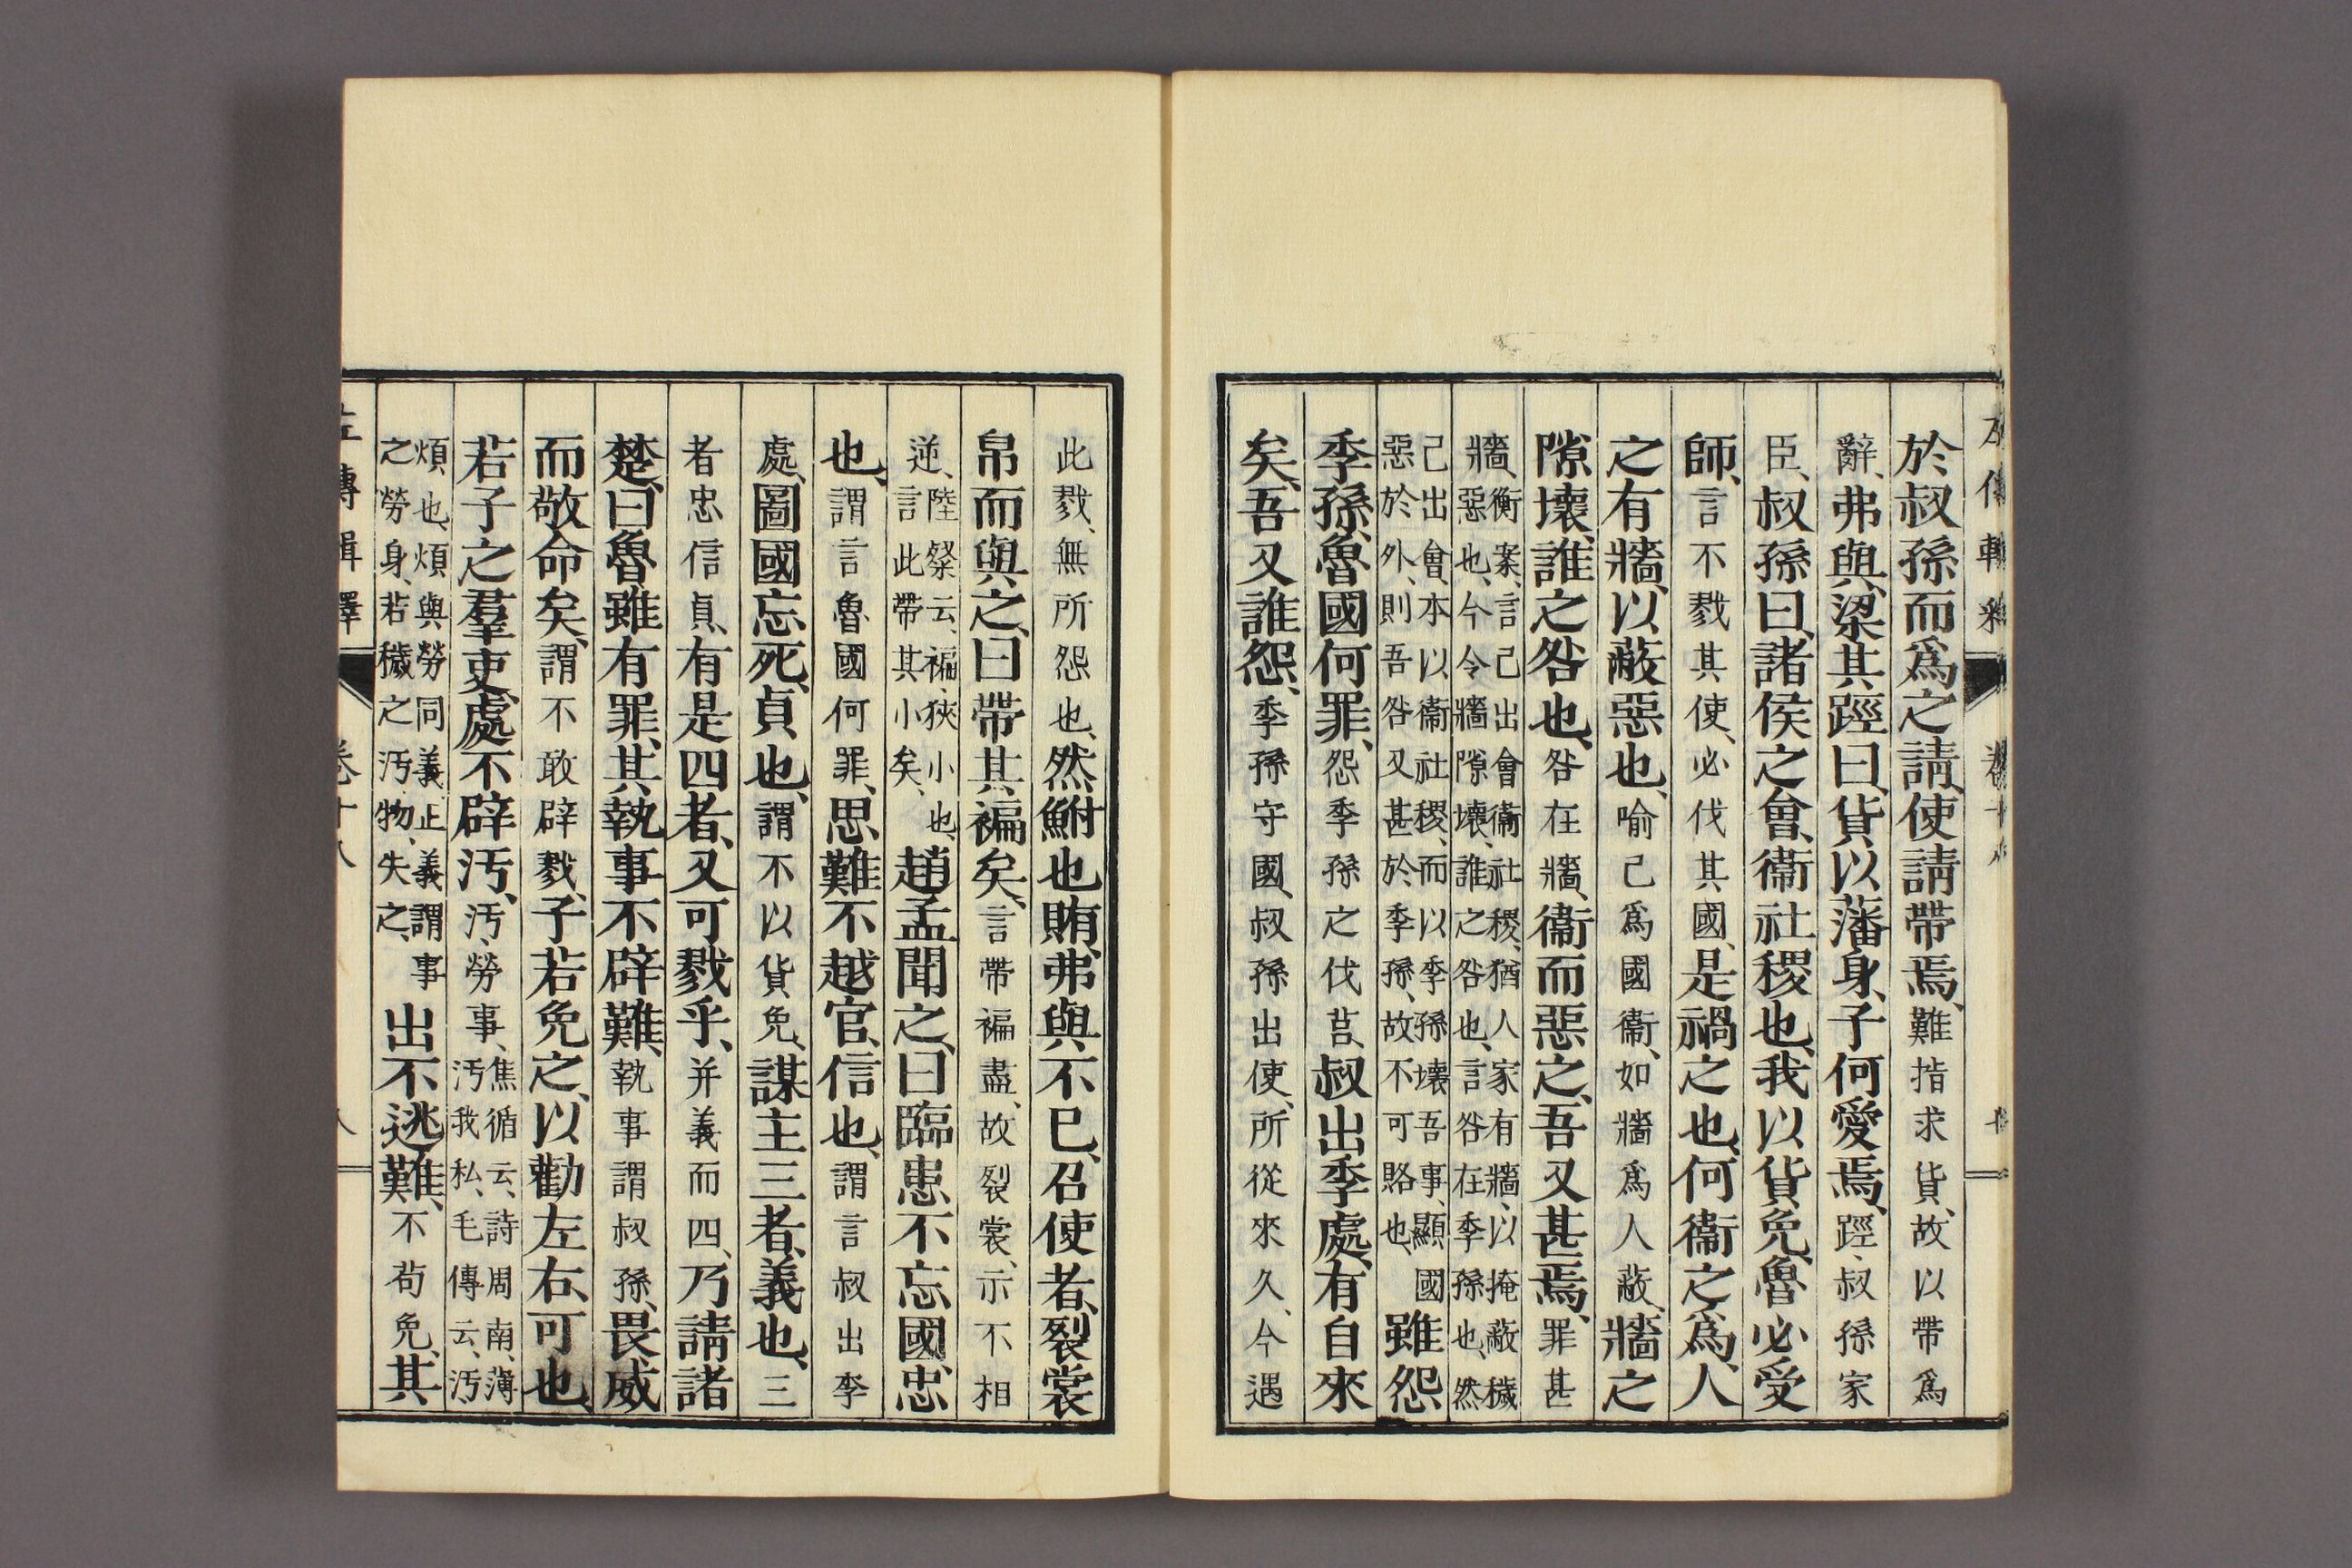 於叔孫而爲之請、使請帶焉、難指求貨、故以帶爲
辭、弗與、梁其踁曰、貨以藩身、子何愛焉、踁、叔孫家
臣、叔孫曰、諸侯之會、衞社稷也、我以貨免、魯必受
師、言不戮其使、必伐其國、是禍之也、何衞之爲、人
之有牆、以蔽惡也、喻己爲國衞、如牆爲人蔽、牆之
隙壞、誰之咎也、咎在牆、衞而惡之、吾又甚焉、罪甚
牆、衡案、言己出會衞社稷、猶人家有牆、以掩蔽穢
惡也、今令牆隙壞、誰之咎也、言咎在季孫也、然
己出會、本以衞社稷、而以季孫壞吾事、顯國
惡於外、則吾咎又甚於季孫、故不可賂也、雖怨
季孫、魯國何罪、怨季孫之伐莒、叔出季處、有自來
矣、吾又誰怨、季孫守國、叔孫出使、所從來久、今遇
此戮、無所怨也、然鮒也賄、弗與、不已、召使者、裂裳
帛而與之、曰帶其褊矣、言帶褊盡、故裂裳、示不相
逆、陸粲云、褊、狹小也、
言此帶其小矣、趙孟聞之、曰臨患不忘國、忠
也、謂言魯國何罪、思難不越官、信也、謂言叔出季
處、圖國忘死、貞也、謂不以貨免、謀主三者、義也、三
者忠信貞、有是四者、又可戮乎、并義而四、乃請諸
楚、曰魯雖有罪、其執事不辟難、執事謂叔孫、畏威
而敬命矣、謂不敢辟戮、子若免之、以勸左右、可也、
若子之羣吏、處不辟汚、汚、勞事、焦循云、詩周南、薄
汚我私、毛傳云、汚
煩也、煩與勞同義、正義謂事
之勞身、若穢之汚物、失之、出不逃難、不苟免、其
左傳輯釋 卷十八